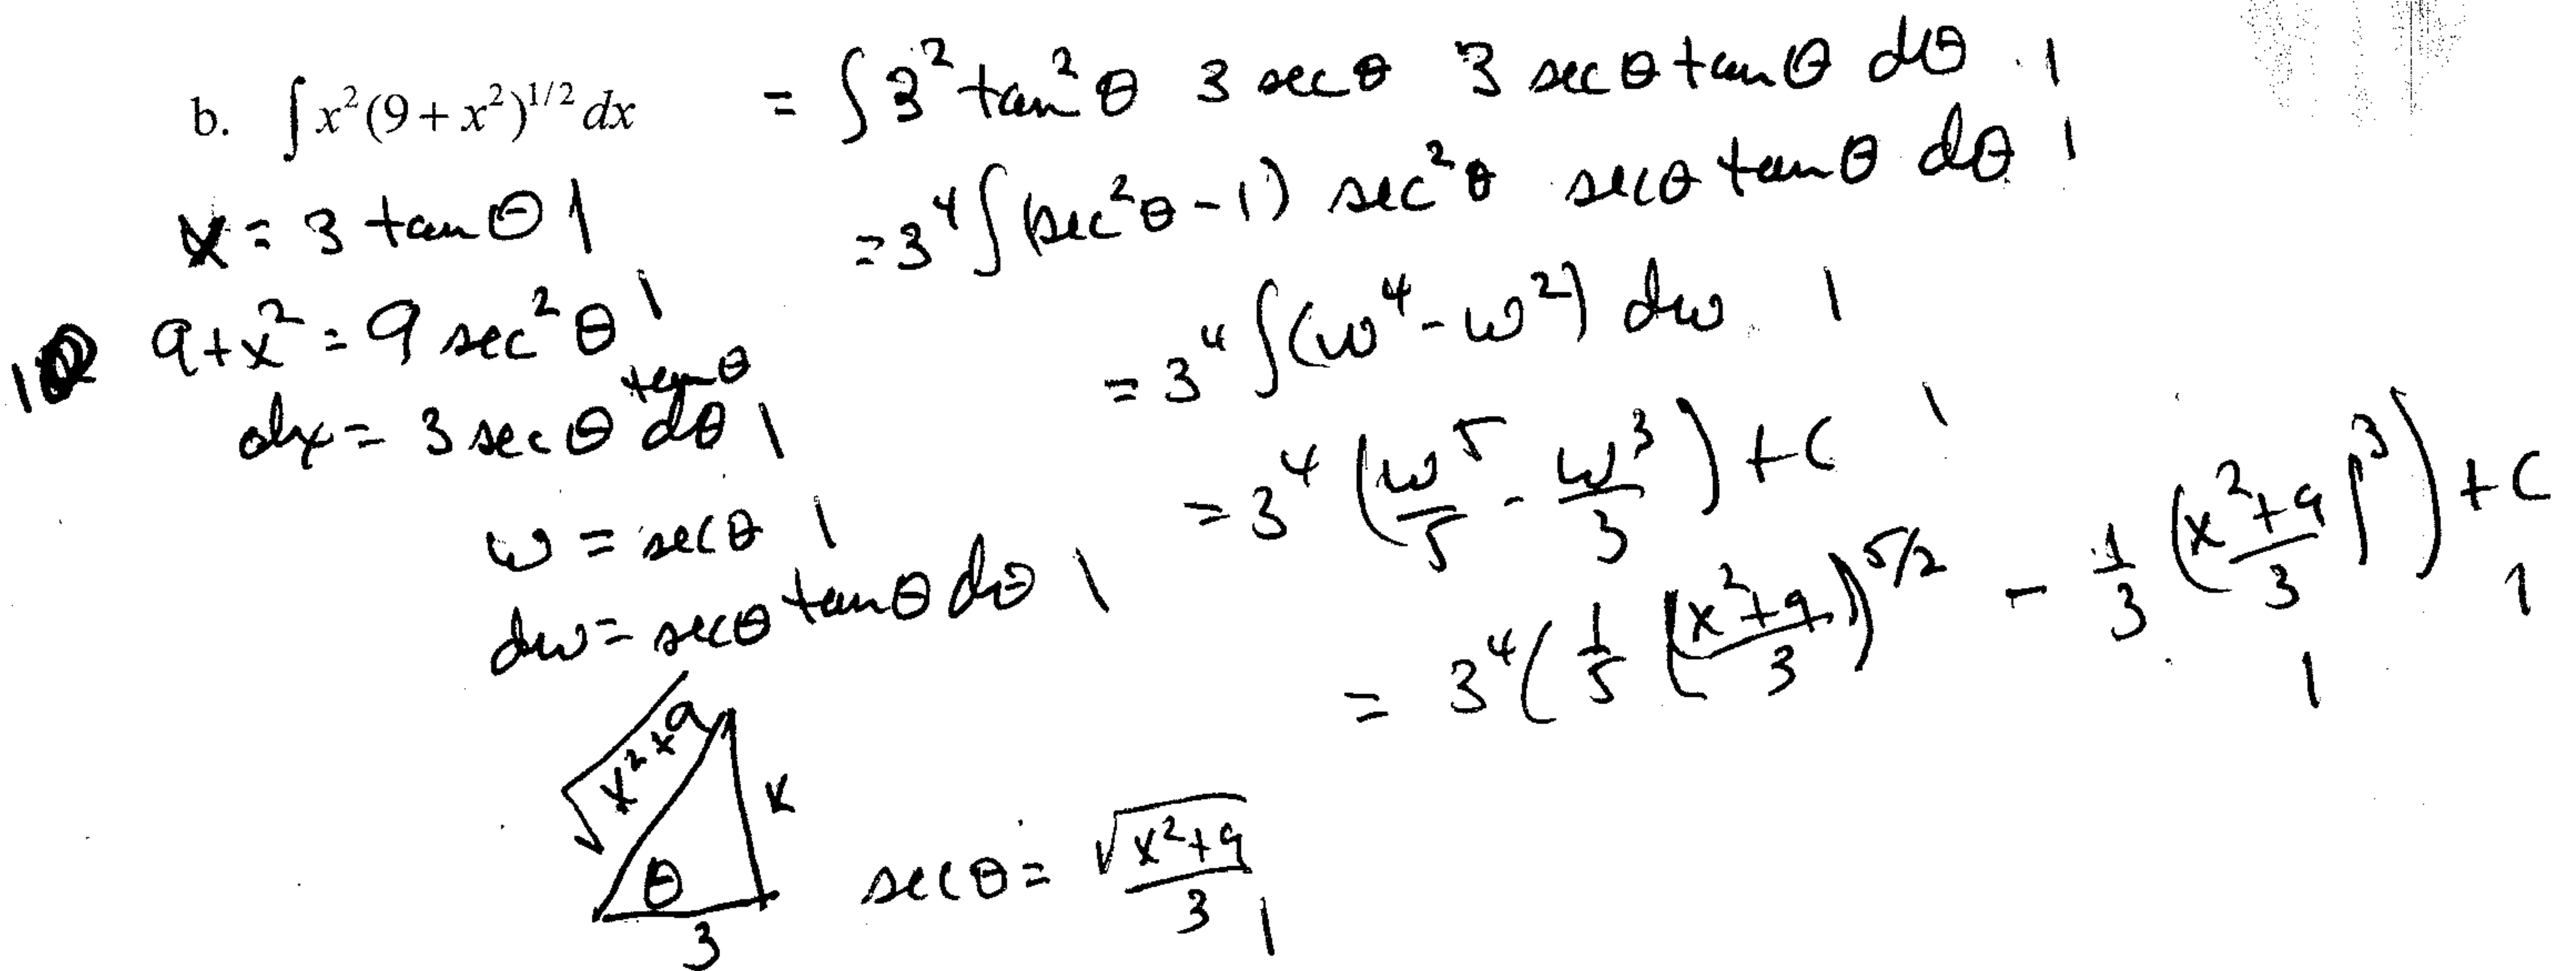 b. ∫ x²(9 + x²)^{1/2} dx = ∫ 3² tan² θ 3 sec θ 3 sec θ tan θ dθ 1
x = 3 tan θ 1
= 3⁴ ∫ (sec² θ - 1) sec² θ sec θ tan θ dθ 1
9 + x² = 9 sec² θ 1
= 3⁴ ∫ (w⁴ - w²) dw 1
dx = 3 sec θ tan θ dθ 1
= 3⁴ (w⁵/5 - w³/3) + C 1
w = sec θ 1
dw = sec θ tan θ dθ 1
= 3⁴ (1/5 ((x² + 9)/3)^{5/2} - 1/3 ((x² + 9)/3)³) + C
1 1
√(x² + 9)
x
θ
3
sec θ = √(x² + 9)/3 1